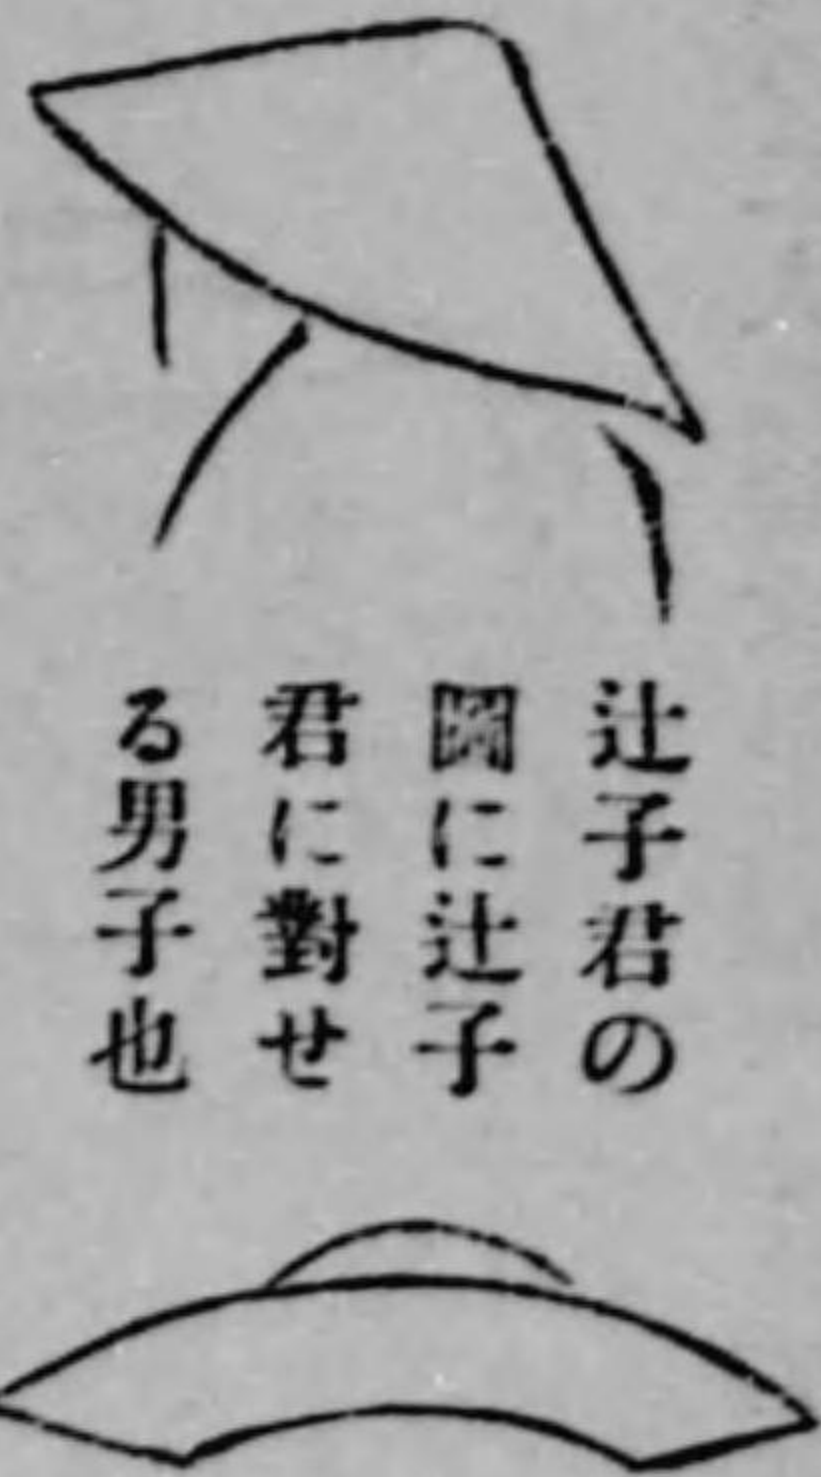 辻子君の
圖に辻子
君に對せ
る男子也